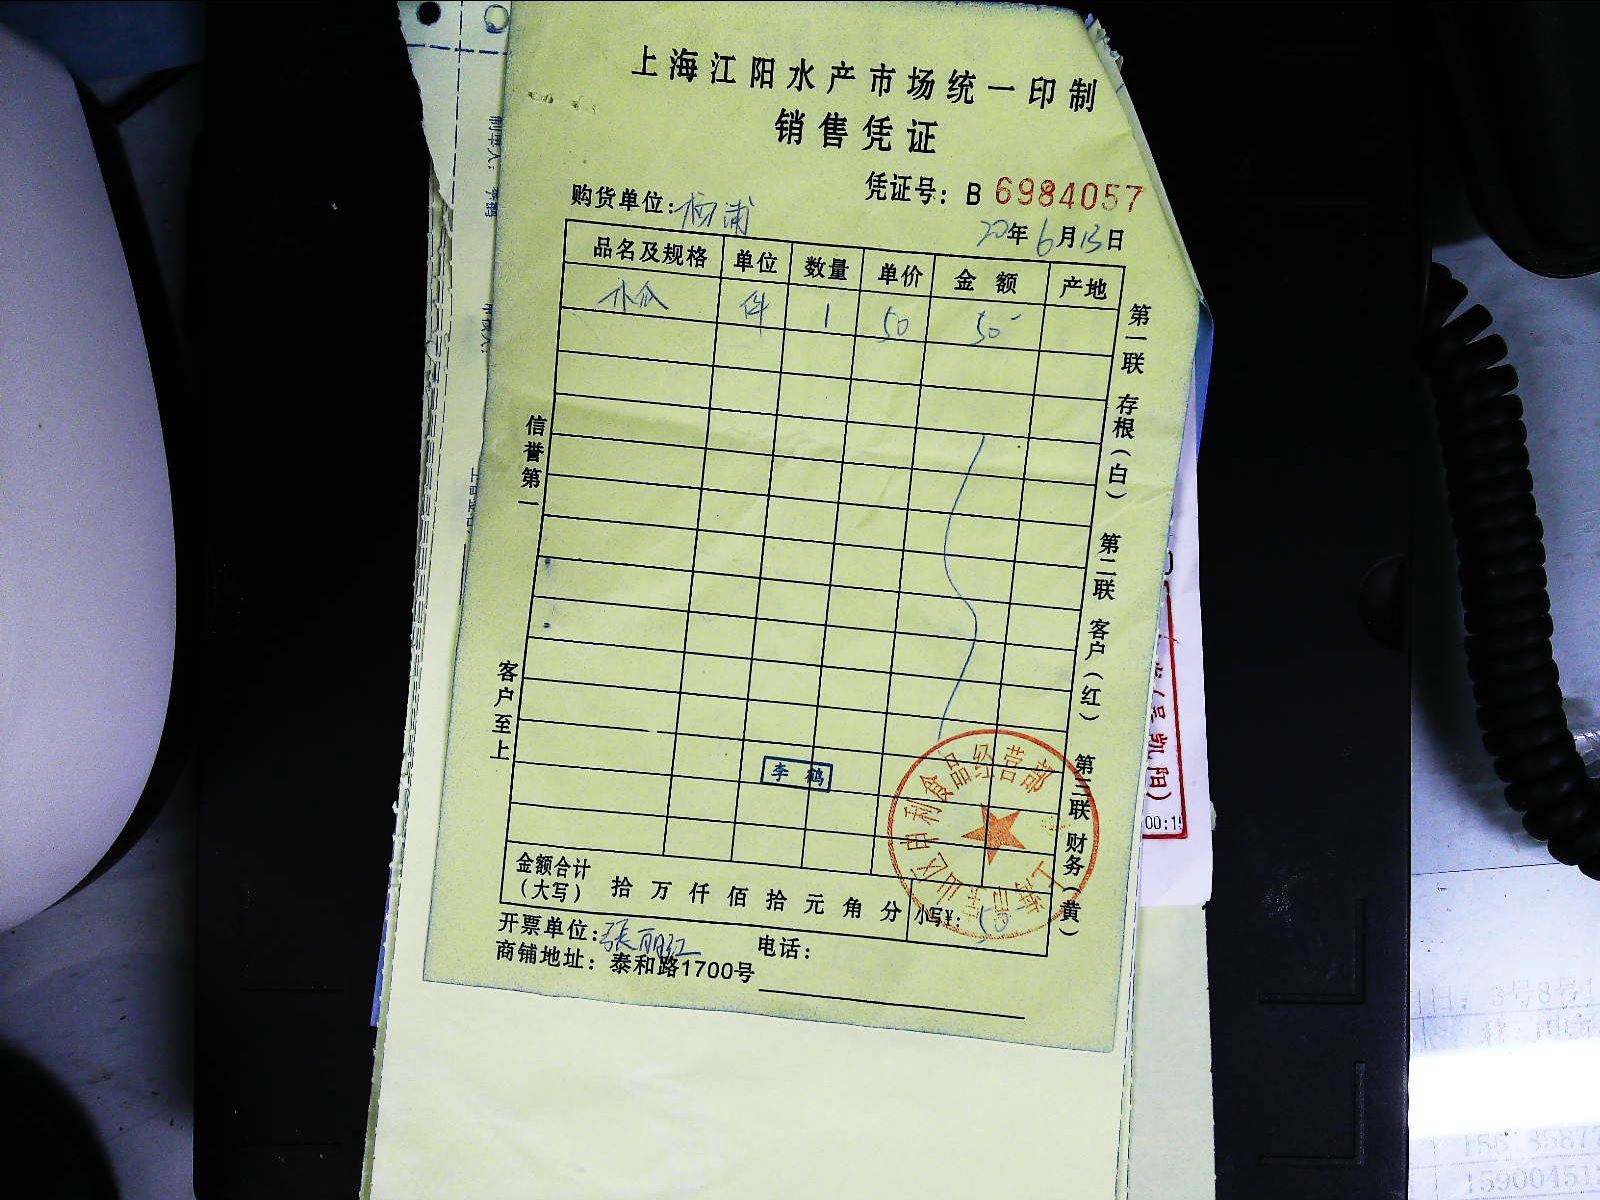 上海江阳水产市场统一印制
销售凭证
凭证号: B 6984057
购货单位: 杨浦
20年6月13日
品名及规格 单位 数量 单价 金 额 产地
件 1 50 50
第一联 存根(白) 第二联 客户(红) 第三联 财务(黄)
信誉第一
客户至上
李 鹤
食品经营部
金额合计
(大写) 拾 万 仟 佰 拾 元 角 分 小写¥: 50
开票单位: 张丽红 电话:
商铺地址: 泰和路1700号
凯阳)
00:1
3号8号1
1590045